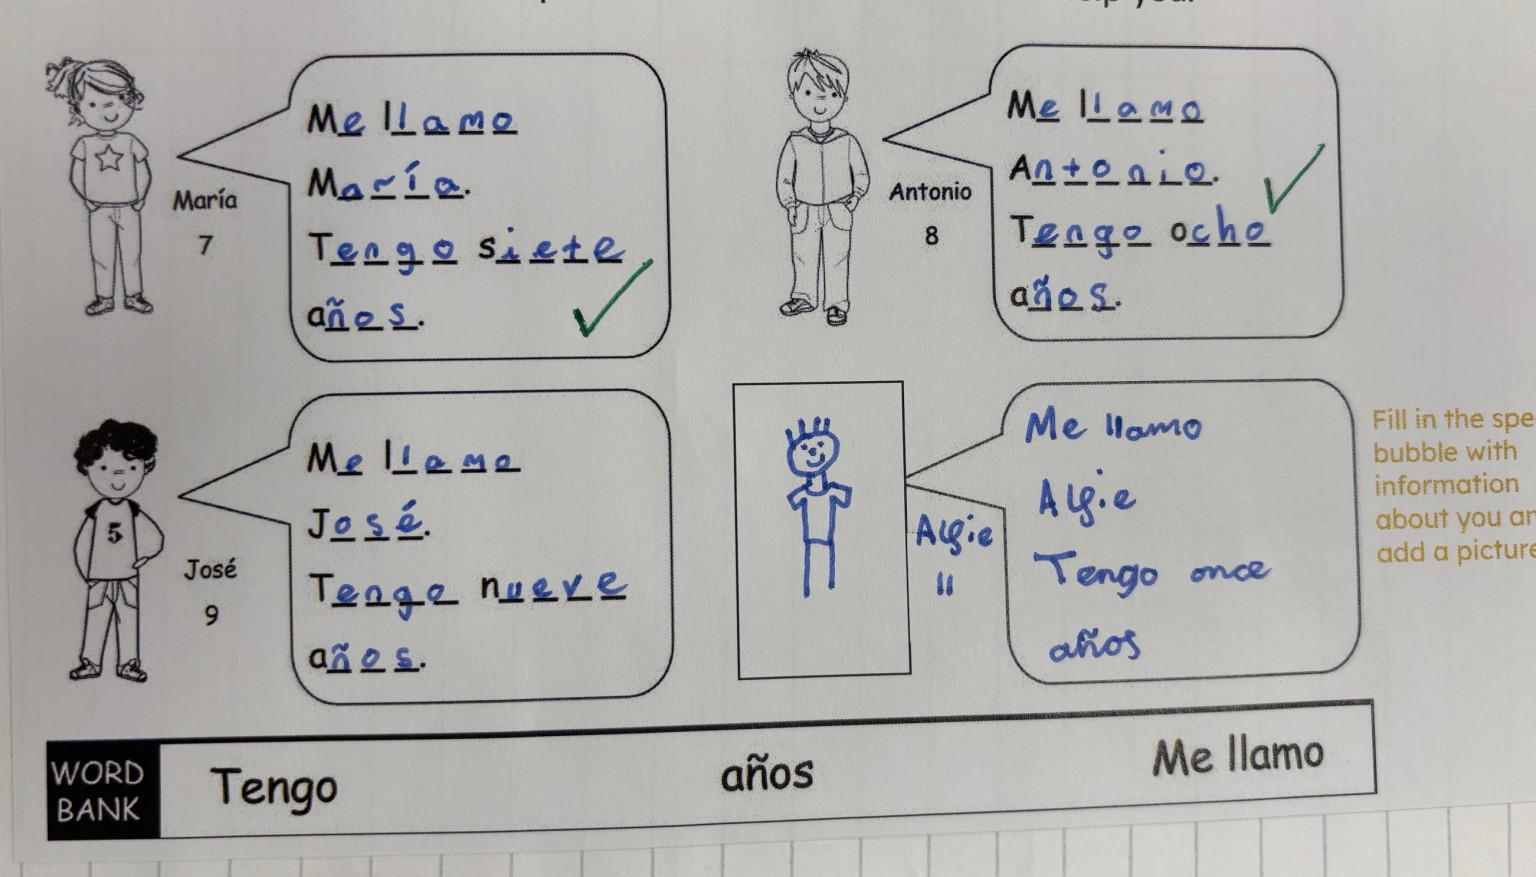 Me llamo
María.
Tengo siete
años.
María
7
Me llamo
Antonio.
Tengo ocho
años.
Antonio
8
Me llamo
José.
Tengo nueve
años.
5
José
9
Me llamo
Algie
Tengo once
años
Algie
11
Fill in the spe
bubble with
information
about you an
add a picture
WORD BANK
Tengo años Me llamo